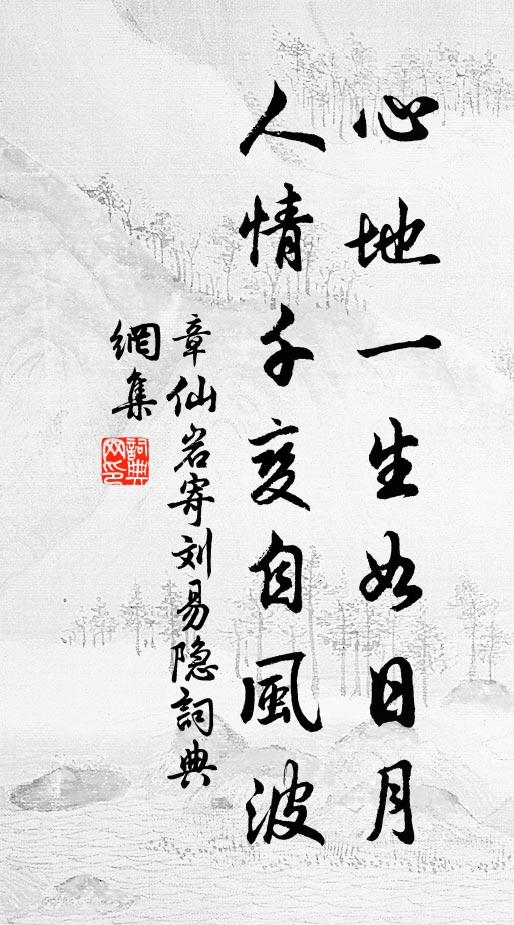 心地一生如日月
人情千变自風波
章仙岩寄刘易隐詞典
網集
詞典网印